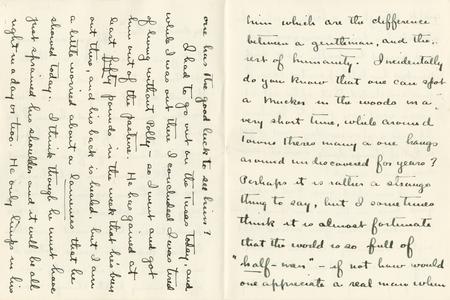 him which are the difference
between a gentleman, and the
rest of humanity. Incidentally
do you know that one can spot
a mucker in the woods in a
very short time, while around
towns theres many a one hangs
around undiscovered for years?
Perhaps it is rather a strange
thing to say, but I sometimes
think it is almost fortunate
that the world is so full of
"half-men" - if not how would
one appreciate a real man when
one has the good luck to see him?
I had to go out on the Tusas today, and
while I was out there I concluded I was tired
of living without Polly - so I went and got
him out of the pasture. He has gained at
least fifty pounds in the week that he's been
out there, and his back is healed, but I am
a little worried about a lameness that he
showed today. I think though he must have
just sprained his shoulder and it will be all
right in a day or two. He only limps in his